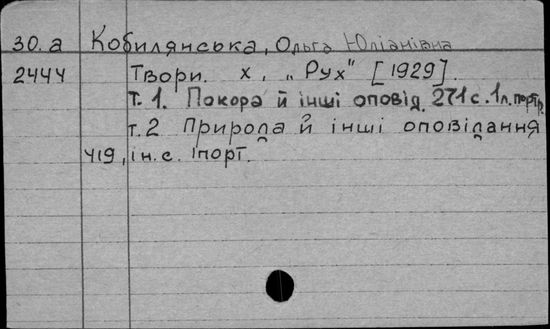 30.а Кобилянська, Ольга Юліанівна
2444 Твори. Х, „Рух" [1929].
т. 1. Покора й інші оповід. 271 с. 1 л. портр.
т. 2 Природа й інші оповідання
419, ін. с. 1порт.